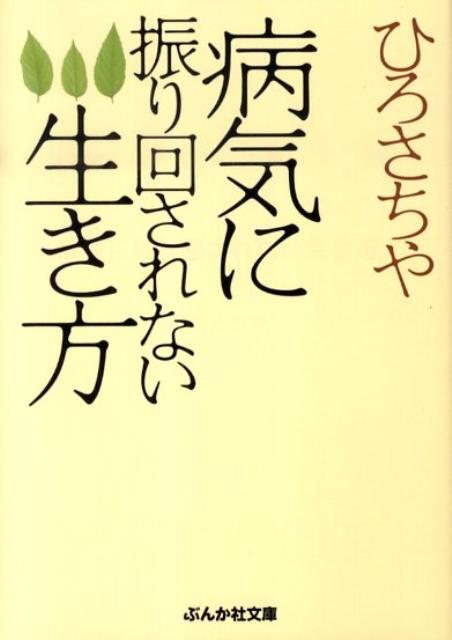 ひろさちや
病気に
振り回されない
生き方
ぶんか社文庫